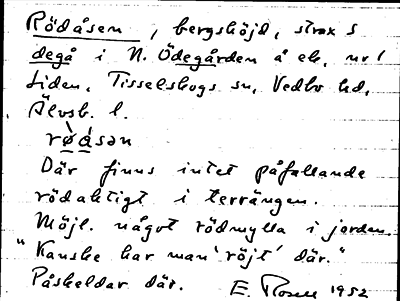 Rödåsen, bergshöjd, strax S
degå i N. Ödegården å ek. nr 1
Liden, Tisselskogs sn, Vedbo hd,
Älvsb. l.
rø̀åsən
Där finns intet påfallande
rödaktigt i terrängen.
Möjl. något rödmylla i jorden.
"Kanske har man 'röjt' där."
Påskeldar där. E. 1952